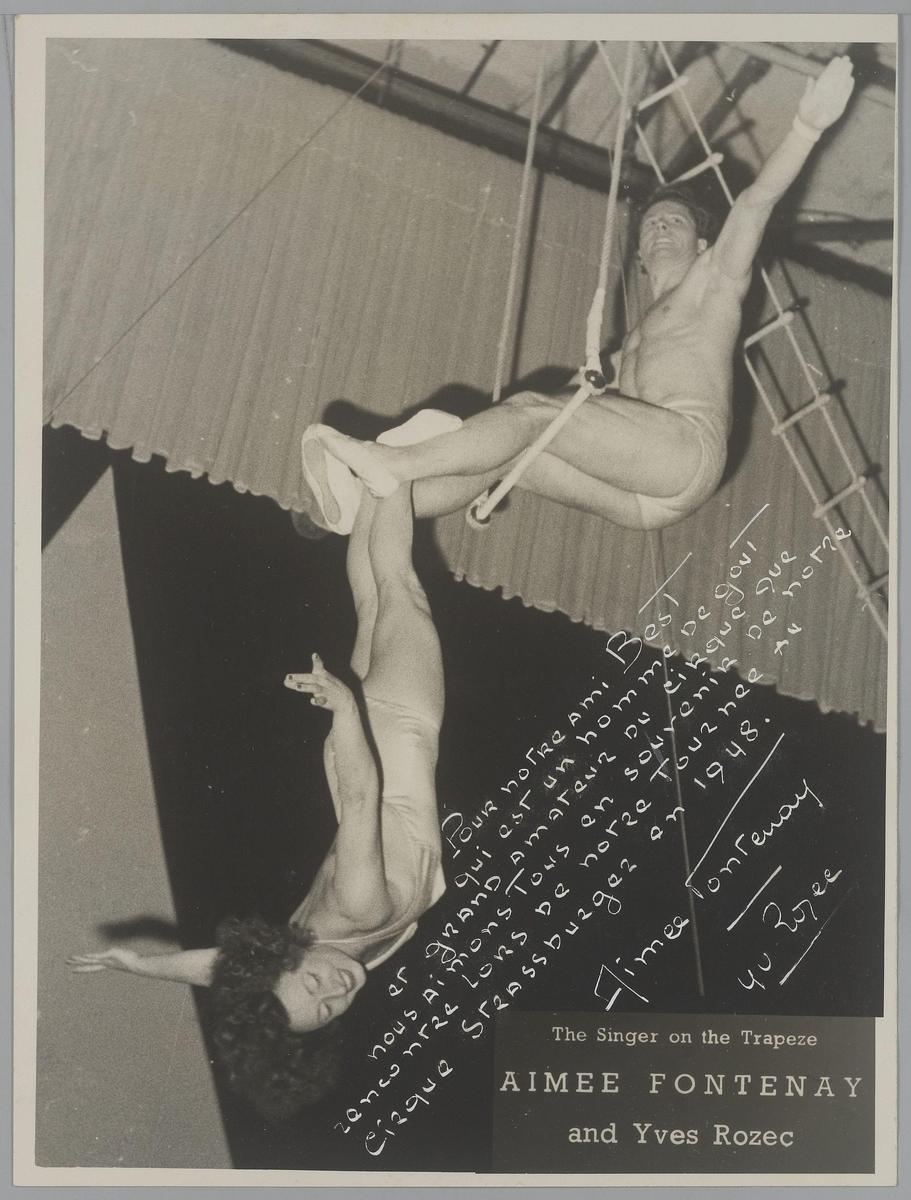 Pour notre ami Best
qui est un homme de gout
et grand amateur du cirque que
nous aimons tous en souvenir de notre
rencontre lors de notre tournee au
Cirque Strassburger en 1948.
Aimee Fontenay
yv Rozec
The Singer on the Trapeze
AIMEE FONTENAY
and Yves Rozec